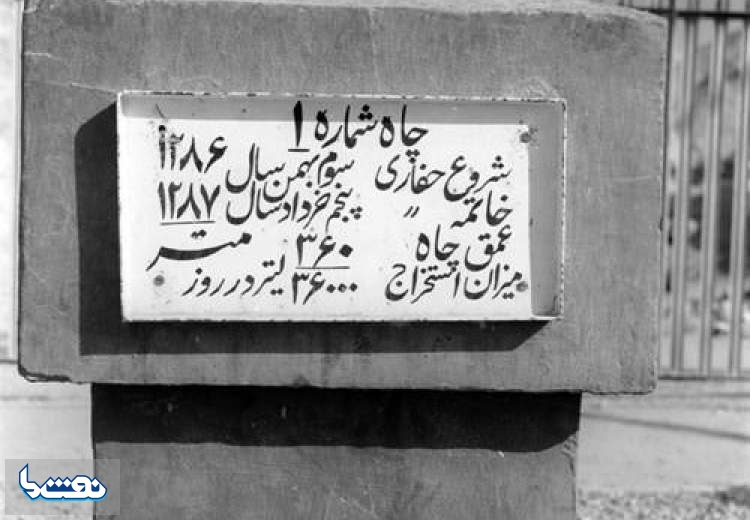 چاه شماره ۱
شروع حفاری سوم بهمن سال ۱۲۸۶
خاتمه " پنجم خرداد سال ۱۲۸۷
عمق چاه ۳۶۰ متر
میزان استخراج ۳۶۰۰۰ لیتر در روز
نفت ما